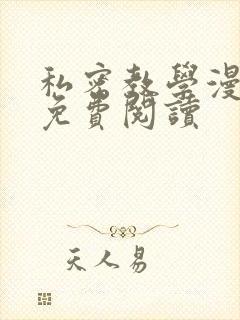 私密教學漫
免費閱讀
天人易